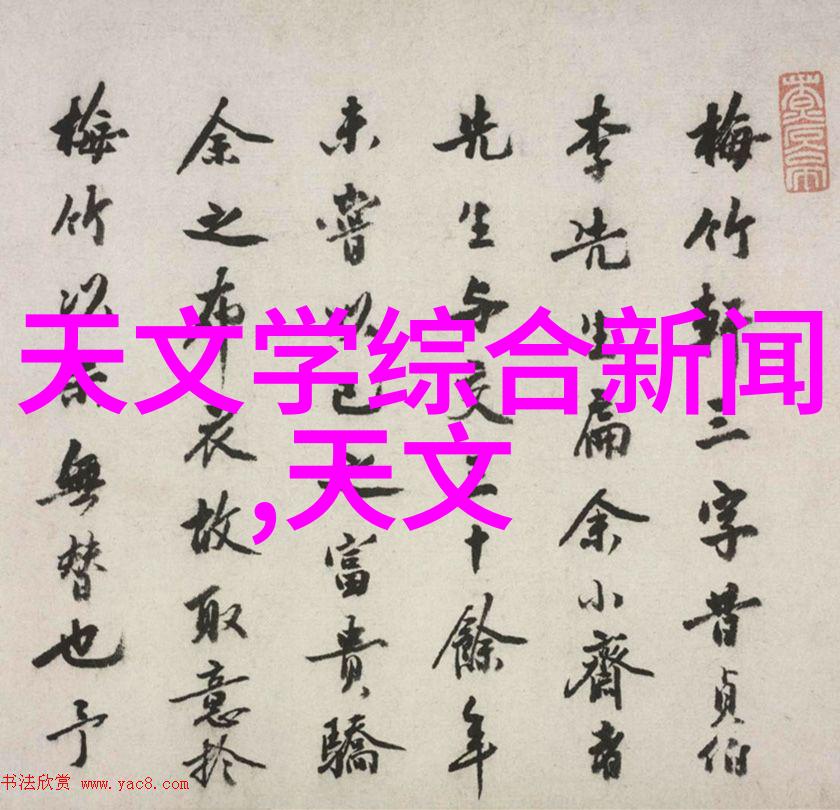 梅竹軒三字昔貞伯
李先生扁余小齋者
先生与交十餘年
未嘗以己之富貴驕
余之布衣故取意於
梅竹以示無替也予
天文学综合新闻
,天文
书法欣赏 www.yac8.com